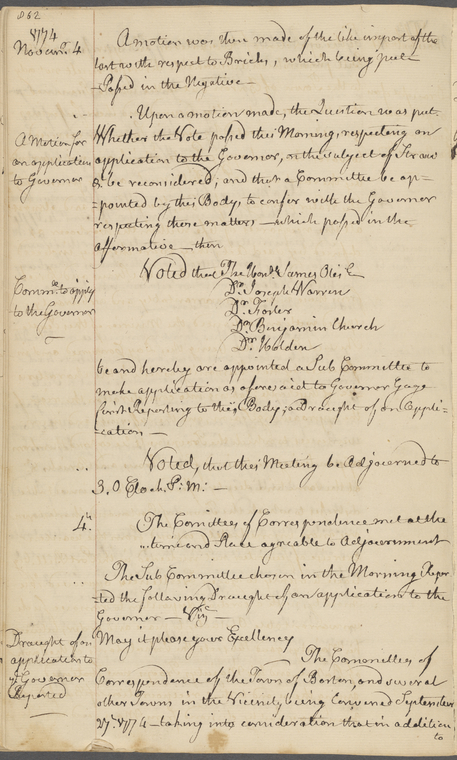 862
1774
Novemr. 4
A motion was then made of the like import of the
last with respect to Bricks, which being put
Passed in the Negative—
Upon a motion made, the Question was put.
A Motion for
an application
to Governor
Whether the Vote passed this Morning, respecting an
application to the Governor, on the subject of Straw
&c. be reconsidered, and that a Committee be ap-
-pointed by this Body, to confer with the Governor
respecting these matters—which passed in the
affirmative—then
Voted that The Honbl. James Otis Esq
Committee to apply
to the Governor
Dr. Joseph Warren
Dn. Foster
Dr. Benjamin Church
Dr. Holden
be and hereby are appointed a Sub Committee to
make application as aforesaid to Governor Gage
first Reporting to this Body, a Draught of an Appli-
-cation—
Voted, that this Meeting be Adjourned to
3, O Clock. P: M:—
4th.
The Comittees of Correspondence met at the
time and Place agreable to Adjournment
The Sub Committee chosen in the Morning Repor-
-ted the following Draught of an application to the
Governor—Vizt—
Draught of an
application to
ye Governor
Reported
May it please your Excellency
The Committees of
Correspondence of the Town of Boston, and several
other Towns in the Vicinity being Convened September
27th. 1774—taking into consideration that in addition
to